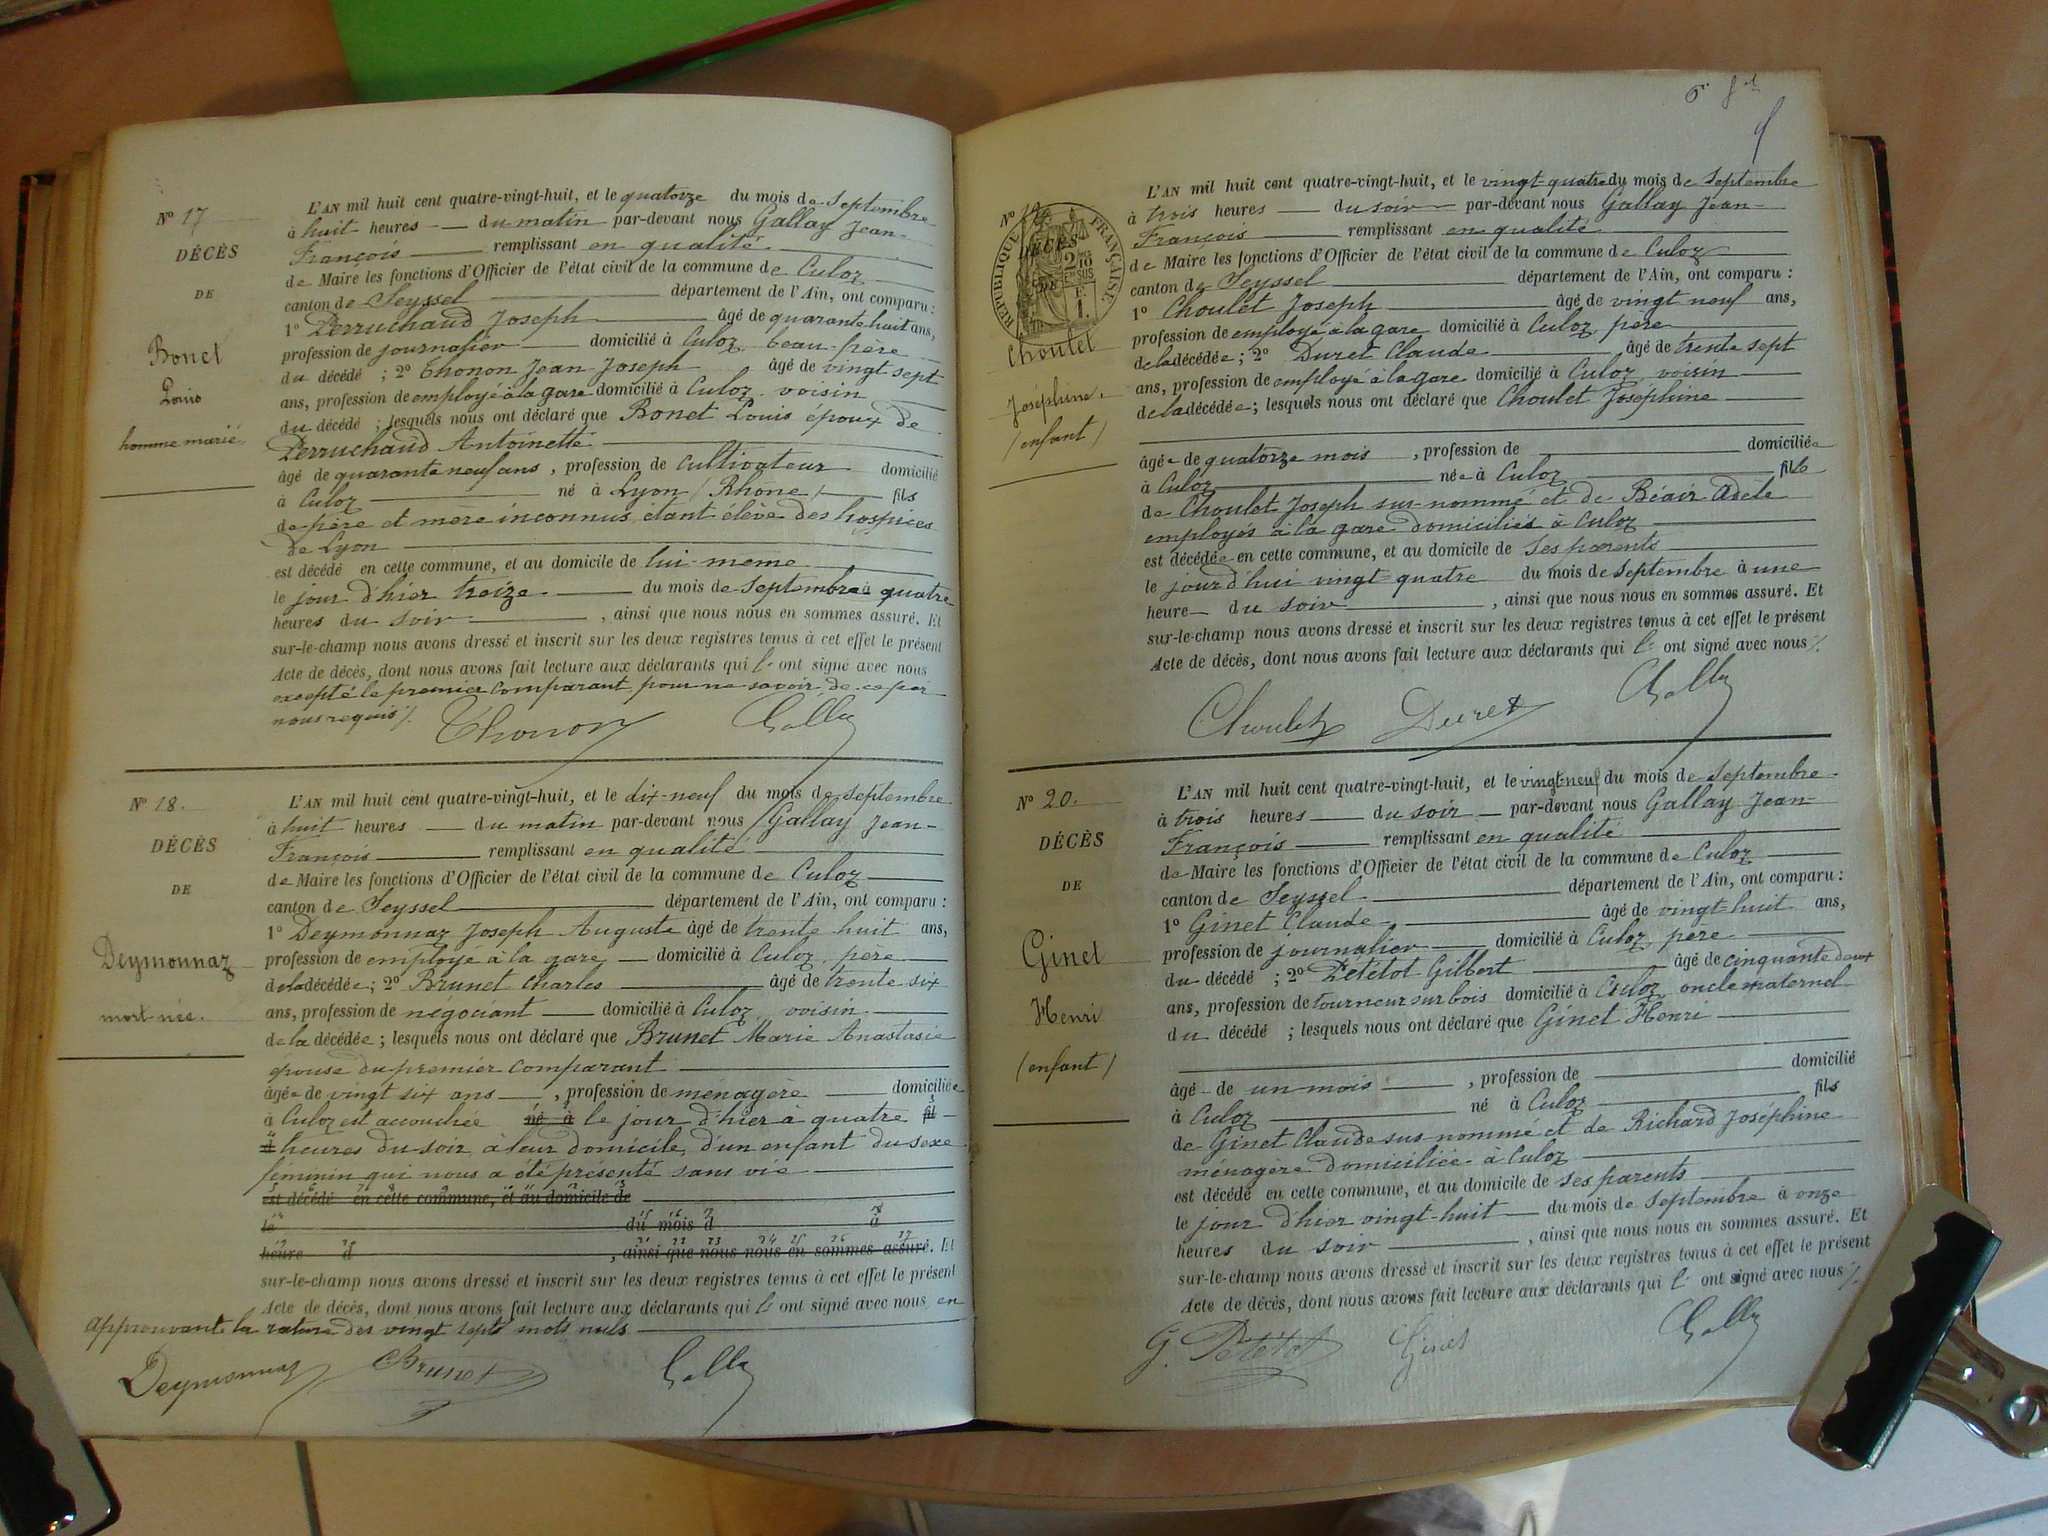 N° 17
DÉCÈS
DE
Bonet
Louis
homme marié
L'AN mil huit cent quatre-vingt-huit, et le quatorze du mois de Septembre
à huit heures du matin par-devant nous Gallay Jean-
François remplissant en qualité
de Maire les fonctions d'Officier de l'état civil de la commune de Culoz
canton de Seyssel département de l'Ain, ont comparu :
1° Perruchaud Joseph âgé de quarante huit ans,
profession de journalier domicilié à Culoz, beau-frère
du décédé ; 2° Thonon Jean Joseph âgé de vingt sept
ans, profession de employé à la gare domicilié à Culoz, voisin
du décédé ; lesquels nous ont déclaré que Bonet Louis époux de
Perruchaud Antoinette
âgé de quarante neuf ans, profession de cultivateur domicilié
à Culoz né à Lyon (Rhône) fils
de père et mère inconnus, étant élève des hospices
de Lyon
est décédé en cette commune, et au domicile de lui-meme
le jour d'hier treize du mois de Septembre à quatre
heures du soir, ainsi que nous nous en sommes assuré. Et
sur-le-champ nous avons dressé et inscrit sur les deux registres tenus à cet effet le présent
Acte de décès, dont nous avons fait lecture aux déclarants qui l' ont signé avec nous
excepté le premier comparant pour ne savoir, de ce par
nous requis ./.
Thonon Gallay
N° 18.
DÉCÈS
DE
Deymonnaz
mort née.
L'AN mil huit cent quatre-vingt-huit, et le dix-neuf du mois de Septembre
à huit heures du matin par-devant nous Gallay Jean-
François remplissant en qualité
de Maire les fonctions d'Officier de l'état civil de la commune de Culoz
canton de Seyssel département de l'Ain, ont comparu :
1° Deymonnaz Joseph Auguste âgé de trente huit ans,
profession de employé à la gare domicilié à Culoz, père
de la décédée ; 2° Brunet Charles âgé de trente six
ans, profession de négociant domicilié à Culoz, voisin
de la décédée ; lesquels nous ont déclaré que Brunet Marie Anastasie
épouse du premier comparant
âgée de vingt six ans, profession de ménagère domiciliée
à Culoz est accouchée né à le jour d'hier à quatre fil
d heures du soir, à leur domicile, d'un enfant du sexe
féminin qui nous a été présenté sans vie
est décédé en cette commune, et au domicile de
le du mois d à
heure d , ainsi que nous nous en sommes assuré. Et
sur-le-champ nous avons dressé et inscrit sur les deux registres tenus à cet effet le présent
Acte de décès, dont nous avons fait lecture aux déclarants qui l' ont signé avec nous, en
approuvant la rature des vingt sept mots nuls
Deymonnaz Brunet Gallay
N° 19
RÉPUBLIQUE FRANÇAISE
DÉCÈS
DE
Choulet
Joséphine.
(enfant)
L'AN mil huit cent quatre-vingt-huit, et le vingt quatre du mois de Septembre
à trois heures du soir par-devant nous Gallay Jean-
François remplissant en qualité
de Maire les fonctions d'Officier de l'état civil de la commune de Culoz
canton de Seyssel département de l'Ain, ont comparu :
1° Choulet Joseph âgé de vingt neuf ans,
profession de employé à la gare domicilié à Culoz, père
de la décédée ; 2° Duret Claude âgé de trente sept
ans, profession de employé à la gare domicilié à Culoz, voisin
de la décédée ; lesquels nous ont déclaré que Choulet Joséphine
âgée de quatorze mois, profession de domiciliée
à Culoz née à Culoz fille
de Choulet Joseph sus-nommé et de Béair Adèle
employés à la gare domiciliés à Culoz
est décédée en cette commune, et au domicile de ses parents
le jour d'hui vingt quatre du mois de Septembre à une
heure du soir, ainsi que nous nous en sommes assuré. Et
sur-le-champ nous avons dressé et inscrit sur les deux registres tenus à cet effet le présent
Acte de décès, dont nous avons fait lecture aux déclarants qui l' ont signé avec nous ./.
Choulet Duret Gallay
N° 20.
DÉCÈS
DE
Ginet
Henri
(enfant)
L'AN mil huit cent quatre-vingt-huit, et le vingt-neuf du mois de Septembre
à trois heures du soir par-devant nous Gallay Jean-
François remplissant en qualité
de Maire les fonctions d'Officier de l'état civil de la commune de Culoz
canton de Seyssel département de l'Ain, ont comparu :
1° Ginet Claude âgé de vingt huit ans,
profession de journalier domicilié à Culoz, père
du décédé ; 2° Petétot Gilbert âgé de cinquante deux
ans, profession de tourneur sur bois domicilié à Culoz, oncle maternel
du décédé ; lesquels nous ont déclaré que Ginet Henri
âgé de un mois, profession de domicilié
à Culoz né à Culoz fils
de Ginet Claude sus nommé et de Richard Joséphine
ménagère domiciliée à Culoz
est décédé en cette commune, et au domicile de ses parents
le jour d'hier vingt-huit du mois de Septembre à onze
heures du soir, ainsi que nous nous en sommes assuré. Et
sur-le-champ nous avons dressé et inscrit sur les deux registres tenus à cet effet le présent
Acte de décès, dont nous avons fait lecture aux déclarants qui l' ont signé avec nous ./.
G. Petétot Ginet Gallay